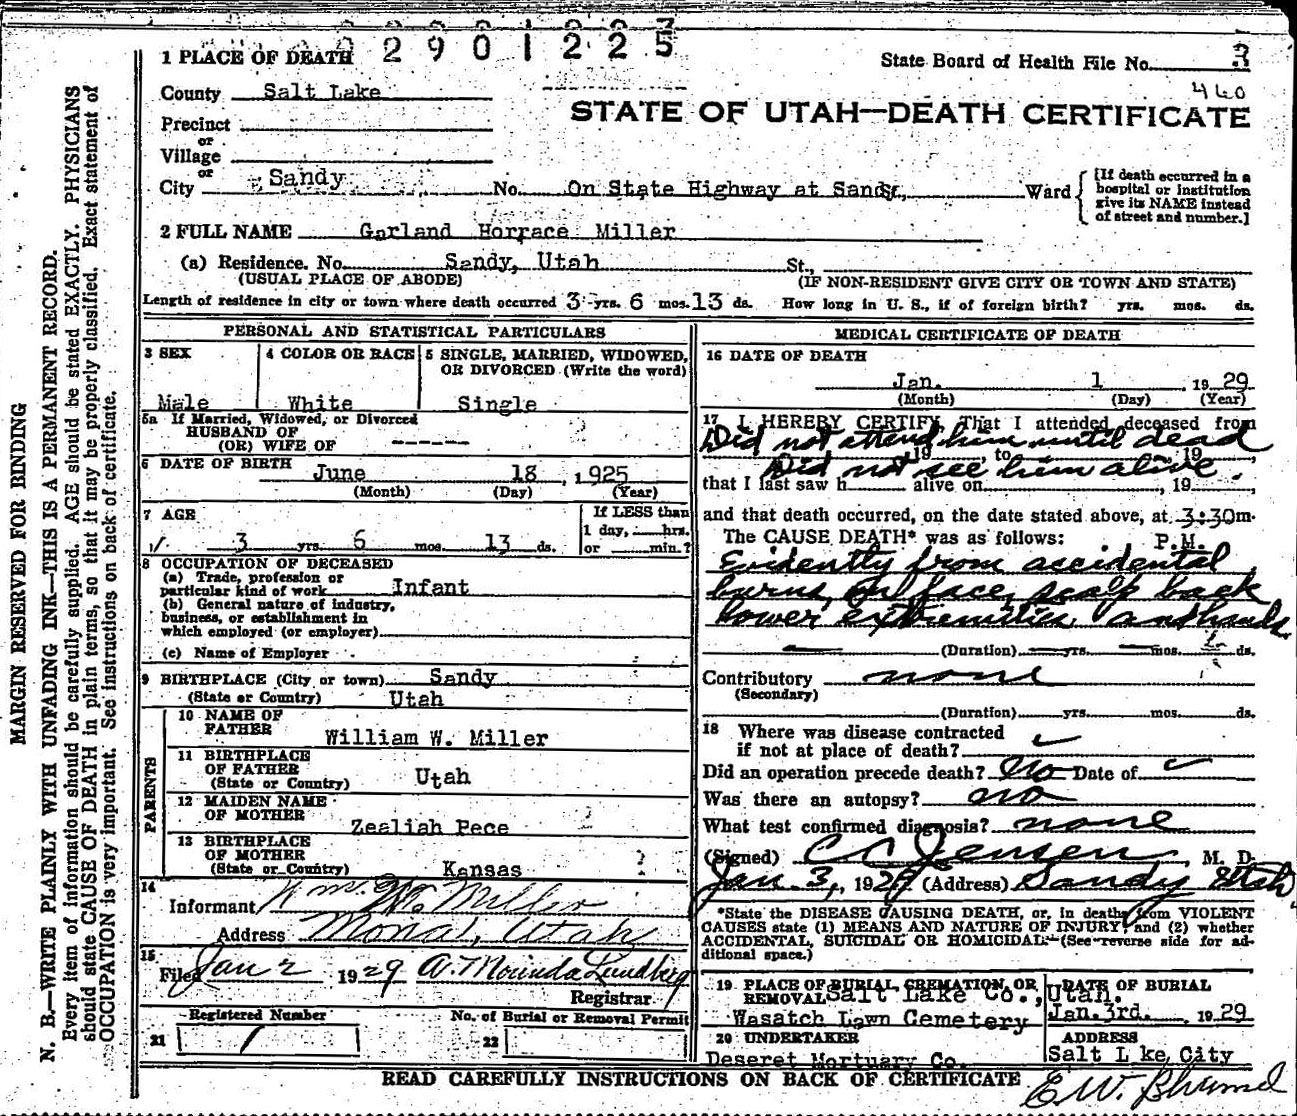 2901225
1 PLACE OF DEATH
State Board of Health File No. 3
460
County Salt Lake
STATE OF UTAH—DEATH CERTIFICATE
Precinct
or
Village
or
City Sandy No. On State Highway at Sandy, Ward
[If death occurred in a hospital or institution give its NAME instead of street and number.]
2 FULL NAME Garland Horrace Miller
(a) Residence. No. Sandy, Utah St.,
(USUAL PLACE OF ABODE) (IF NON-RESIDENT GIVE CITY OR TOWN AND STATE)
Length of residence in city or town where death occurred 3 yrs. 6 mos. 13 ds. How long in U. S., if of foreign birth? yrs. mos. ds.
PERSONAL AND STATISTICAL PARTICULARS
3 SEX
Male
4 COLOR OR RACE
White
5 SINGLE, MARRIED, WIDOWED,
OR DIVORCED (Write the word)
Single
5a If Married, Widowed, or Divorced
HUSBAND OF
(OR) WIFE OF ------
6 DATE OF BIRTH June 18, 1925
(Month) (Day) (Year)
7 AGE
3 yrs. 6 mos. 13 ds.
If LESS than
1 day, hrs.
or min.?
8 OCCUPATION OF DECEASED
(a) Trade, profession or
particular kind of work Infant
(b) General nature of industry,
business, or establishment in
which employed (or employer)
(c) Name of Employer
9 BIRTHPLACE (City or town) Sandy
(State or Country) Utah
PARENTS
10 NAME OF
FATHER William W. Miller
11 BIRTHPLACE
OF FATHER
(State or Country) Utah
12 MAIDEN NAME
OF MOTHER
Zealiah Pece
13 BIRTHPLACE
OF MOTHER
(State or Country) Kansas ?
14
Informant Wm. W. Miller
Address Utah
15
Filed Jan 2 1929 A. Morinda Lundberg
Registrar
Registered Number No. of Burial or Removal Permit
21 1 22
MEDICAL CERTIFICATE OF DEATH
16 DATE OF DEATH
Jan. 1 1929
(Month) (Day) (Year)
17 I HEREBY CERTIFY, That I attended deceased from
Did not attend him until dead
19 , to 19 ,
Did not see him alive.
that I last saw h alive on , 19 ,
and that death occurred, on the date stated above, at 3:30m.
The CAUSE DEATH* was as follows: P.M.
Evidently from accidental
burns, on face, scalp back
lower extremities and hands
(Duration) yrs. mos. ds.
Contributory none
(Secondary)
(Duration) yrs. mos. ds.
18 Where was disease contracted
if not at place of death?
Did an operation precede death? No Date of
Was there an autopsy? no
What test confirmed diagnosis? none
(Signed) C C Jensen, M. D.
Jan 3, 1929 (Address) Sandy Utah
*State the DISEASE CAUSING DEATH, or, in deaths from VIOLENT
CAUSES state (1) MEANS AND NATURE OF INJURY; and (2) whether
ACCIDENTAL, SUICIDAL OR HOMICIDAL. (See reverse side for ad-
ditional space.)
19 PLACE OF BURIAL, CREMATION, OR
REMOVAL Salt Lake Co., Utah.
Wasatch Lawn Cemetery
DATE OF BURIAL
Jan. 3rd. 1929
20 UNDERTAKER
Deseret Mortuary Co.
ADDRESS
Salt L ke, City
READ CAREFULLY INSTRUCTIONS ON BACK OF CERTIFICATE
E. W.
MARGIN RESERVED FOR BINDING
N. B.—WRITE PLAINLY WITH UNFADING INK—THIS IS A PERMANENT RECORD.
Every item of information should be carefully supplied. AGE should be stated EXACTLY. PHYSICIANS
should state CAUSE OF DEATH in plain terms, so that it may be properly classified. Exact statement of
OCCUPATION is very important. See instructions on back of certificate.